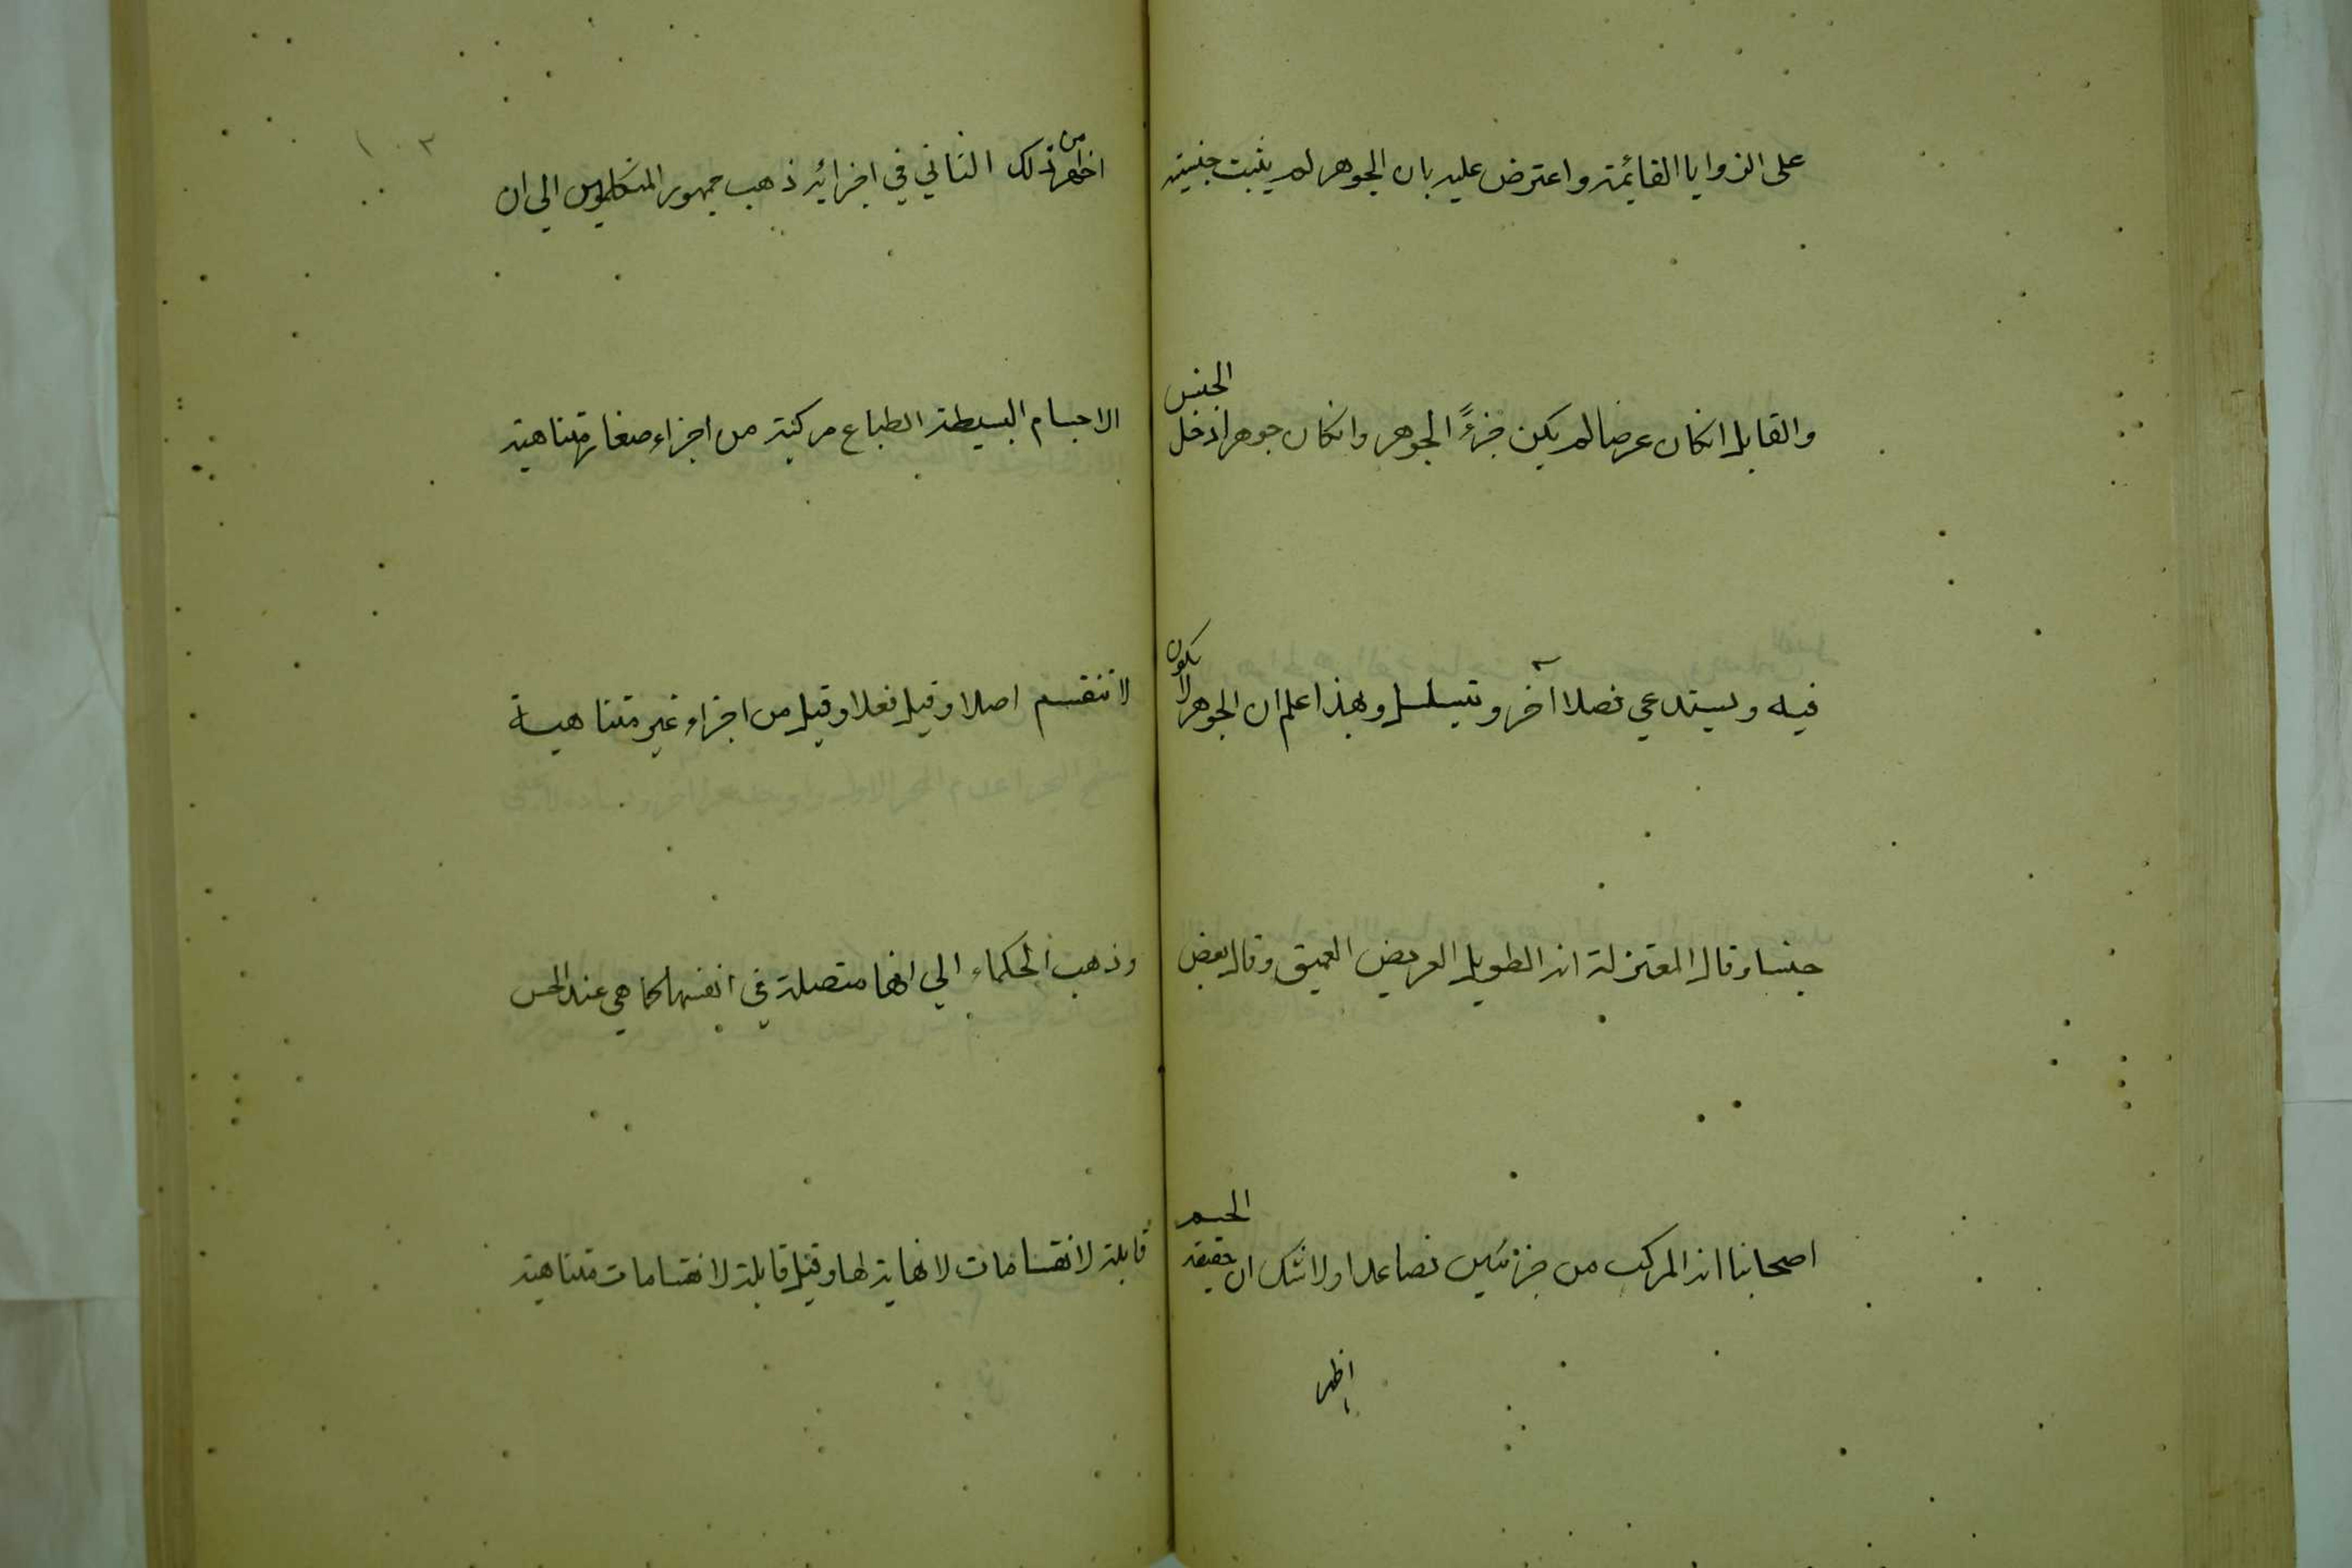 على الزوايا القائمة واعترض عليه بان الجوهر لم يثبت جنسيته
والقابل انكان عرضا لم يكن جزءً الجوهر وانكان جوهرا دخل الجنس
فيه ويستدعي فصلا آخر وتسلسل وبهذا اعلم ان الجوهر لا يكون
جنسا وقال المعتزلة انه الطويل العريض العميق وقال بعض
اصحابنا انه المركب من جزئين فصاعدا ولا شك ان حقيقة الجسم
اظهر
اظهر من ذلك الثاني في اجزائه ذهب جمهور المتكلمين الي ان
الاجسام البسيطة الطباع مركبة من اجزاء صغار متناهية
لا تنقسم اصلا وقيل فعلا وقيل من اجزاء غير متناهية
وذهب الحكماء الي انها متصلة في انفسها كما هي عند الحس
قابلة لانقسامات لا نهاية لها وقيل قابلة لانقسامات متناهية
١٠٣